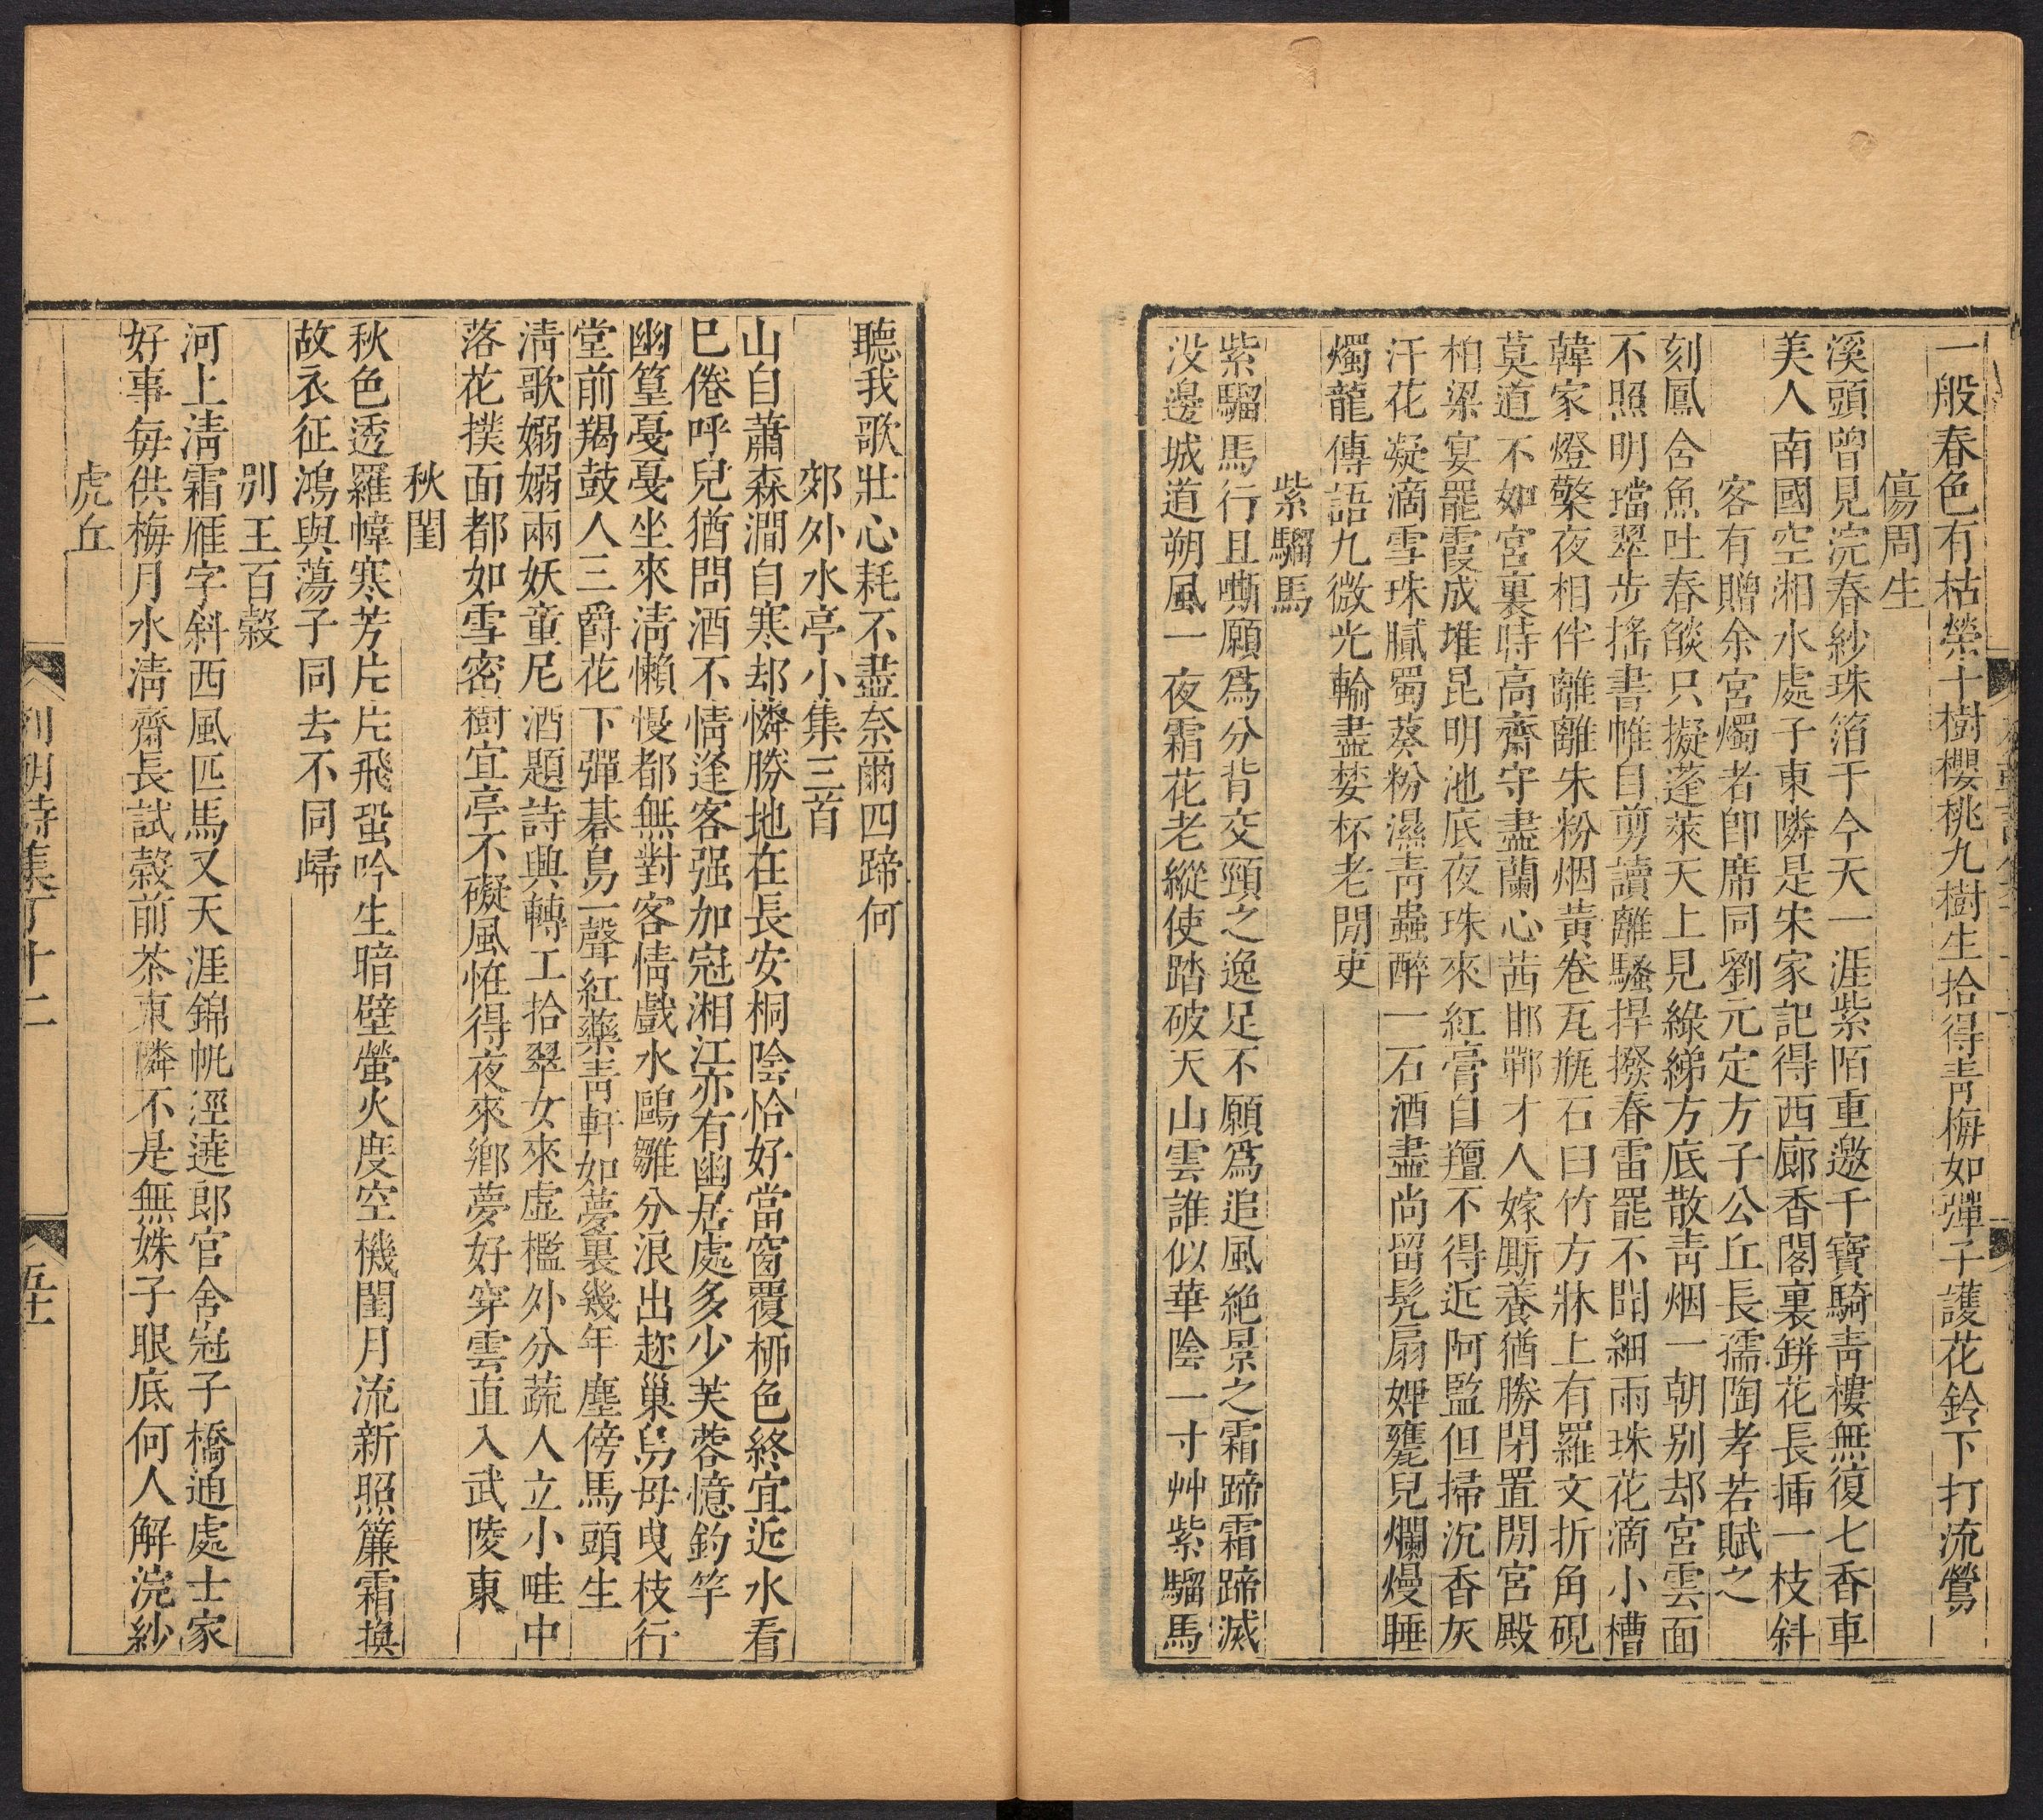 一般春色有枯榮十樹櫻桃九樹生拾得靑梅如彈子護花鈴下打流鶯
傷周生
溪頭曾見浣春紗珠箔于今天一涯紫陌重邀千寶騎靑樓無復七香車
美人南國空湘水處子東隣是宋家記得西廊香閣裏鉼花長揷一枝斜
客有贈余宮燭者卽席同劉元定方子公丘長孺陶孝若賦之
刻鳳含魚吐春燄只擬蓬萊天上見綠綈方底散靑烟一朝別却宮雲面
不照明璫翠步搖書帷自剪讀離騷捍撥春雷罷不聞細雨珠花滴小槽
韓家燈檠夜相伴離離朱粉烟黃卷瓦甁石臼竹方牀上有羅文折角硯
莫道不如宮裏時高齋守盡蘭心茜邯鄲才人嫁厮養猶勝閉置閒宮殿
柏梁宴罷霞成堆昆明池底夜珠來紅膏自羶不得近阿監但掃沉香灰
汗花凝滴雪珠膩蜀葵粉濕靑蟲醉一石酒盡尚留髠扇婢甕兒爛熳睡
燭龍傳語九微光輪盡婪杯老閒吏
紫騮馬
紫騮馬行且嘶願爲分背交頸之逸足不願爲追風絶景之霜蹄霜蹄滅
没邊城道朔風一夜霜花老縱使踏破天山雲誰似華陰一寸艸紫騮馬
聽我歌壯心耗不盡奈爾四蹄何
郊外水亭小集三首
山自蕭森澗自寒却憐勝地在長安桐陰恰好當窗覆桺色終宜近水看
巳倦呼兒猶問酒不情逢客强加冠湘江亦有幽居處多少芙蓉憶釣竿
幽篁戞戞坐來淸懶慢都無對客情戲水鷗雛分浪出趂巢舃母曳枝行
堂前羯鼓人三爵花下彈碁鳥一聲紅藥靑軒如夢裏幾年塵傍馬頭生
淸歌嫋嫋兩妖童尼酒題詩興轉工拾翠女來虛檻外分蔬人立小畦中
落花撲面都如雪密樹宜亭不礙風惟得夜來鄉夢好穿雲直入武陵東
秋閨
秋色透羅幃寒芳片片飛蛩吟生暗壁螢火度空機閨月流新照簾霜換
故衣征鴻與蕩子同去不同歸
別王百穀
河上淸霜雁字斜西風匹馬又天涯錦帆逕遶郎官舍冠子橋通處士家
好事每供梅月水淸齋長試穀前茶東隣不是無姝子眼底何人解浣紗
虎丘
列朝詩集丁十二
五十一